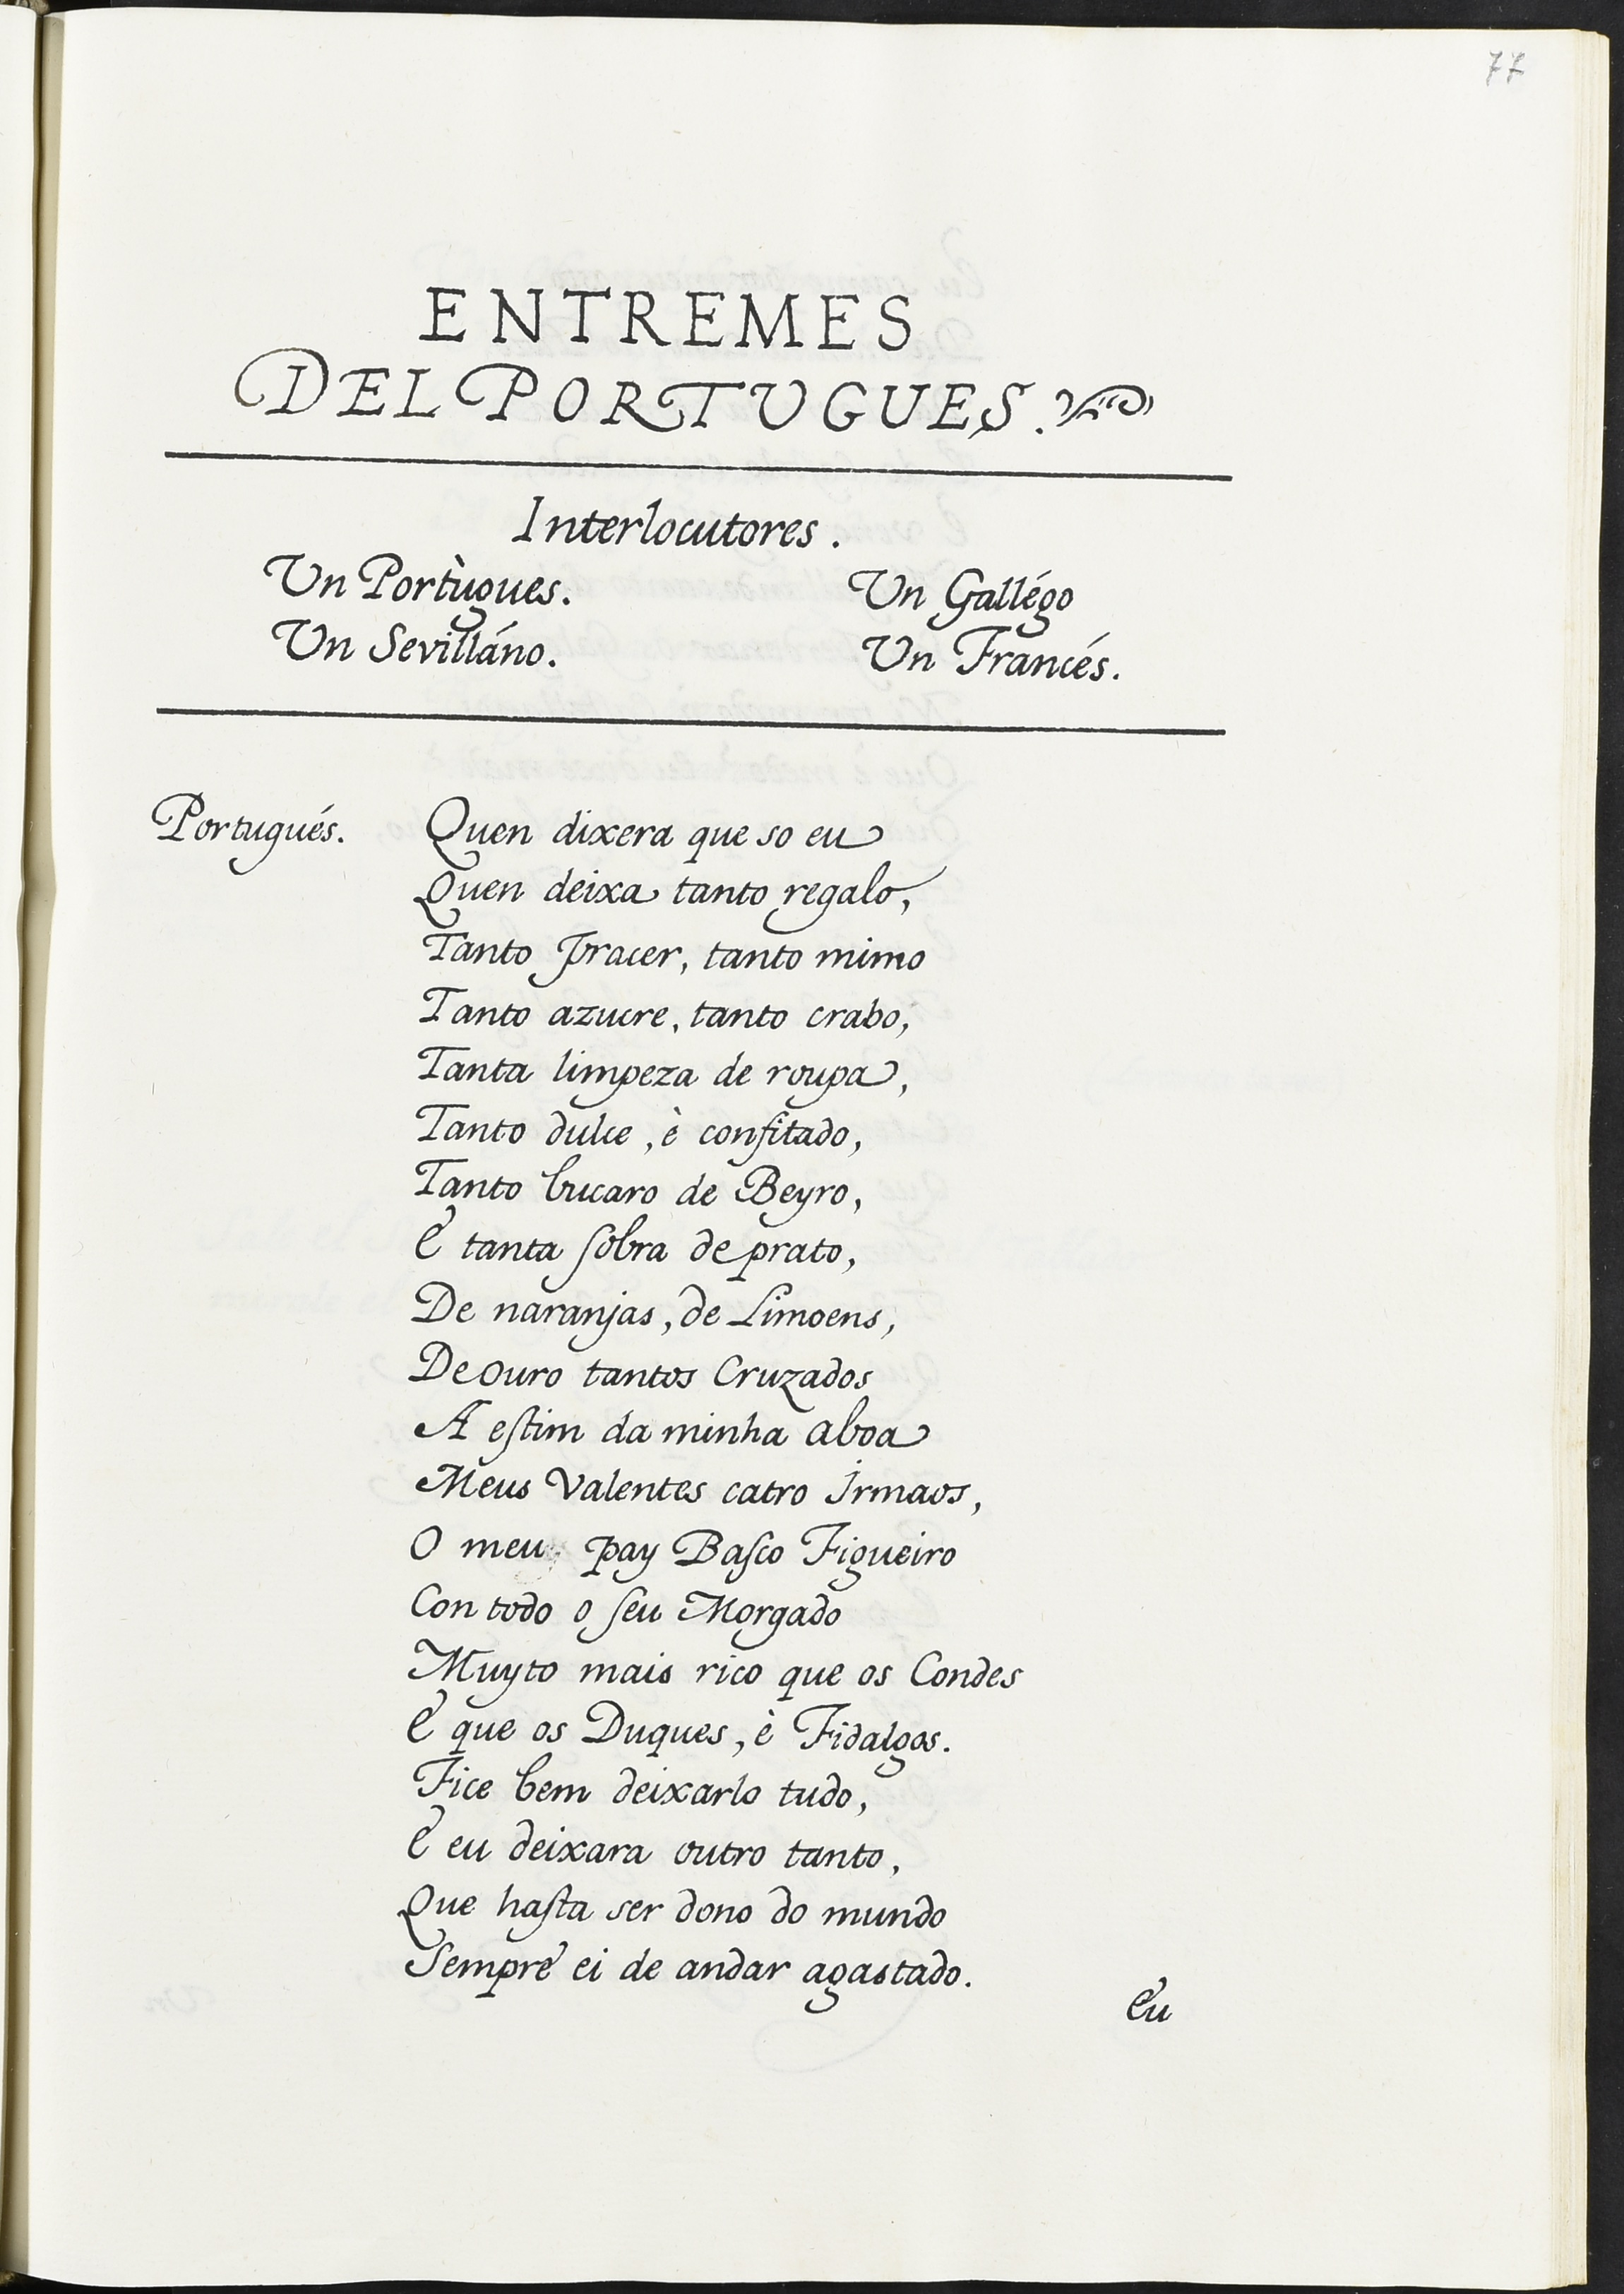 77
ENTREMES
DEL PORTUGUES.
Interlocutores.
Un Portùgues. Un Gallégo
Un Sevilláno. Un Francés.
Portugués. Quen dixera que so eu
Quen deixa tanto regalo,
Tanto pracer, tanto mimo
Tanto azucre, tanto crabo,
Tanta limpeza de roupa,
Tanto dulce, è confitado,
Tanto bucaro de Beyro,
E tanta ſobra de prato,
De naranjas, de Limoens,
De ouro tantos Cruzados
A eſtim da minha aboa
Meus Valentes catro Irmaos,
O meu pay Baſco Figueiro
Con todo o ſeu Morgado
Muyto mais rico que os Condes
E que os Duques, è Fidalgos.
Fice bem deixarlo tudo,
E eu deixara outro tanto,
Que haſta ser dono do mundo
Sempre ei de andar agastado.
Eu